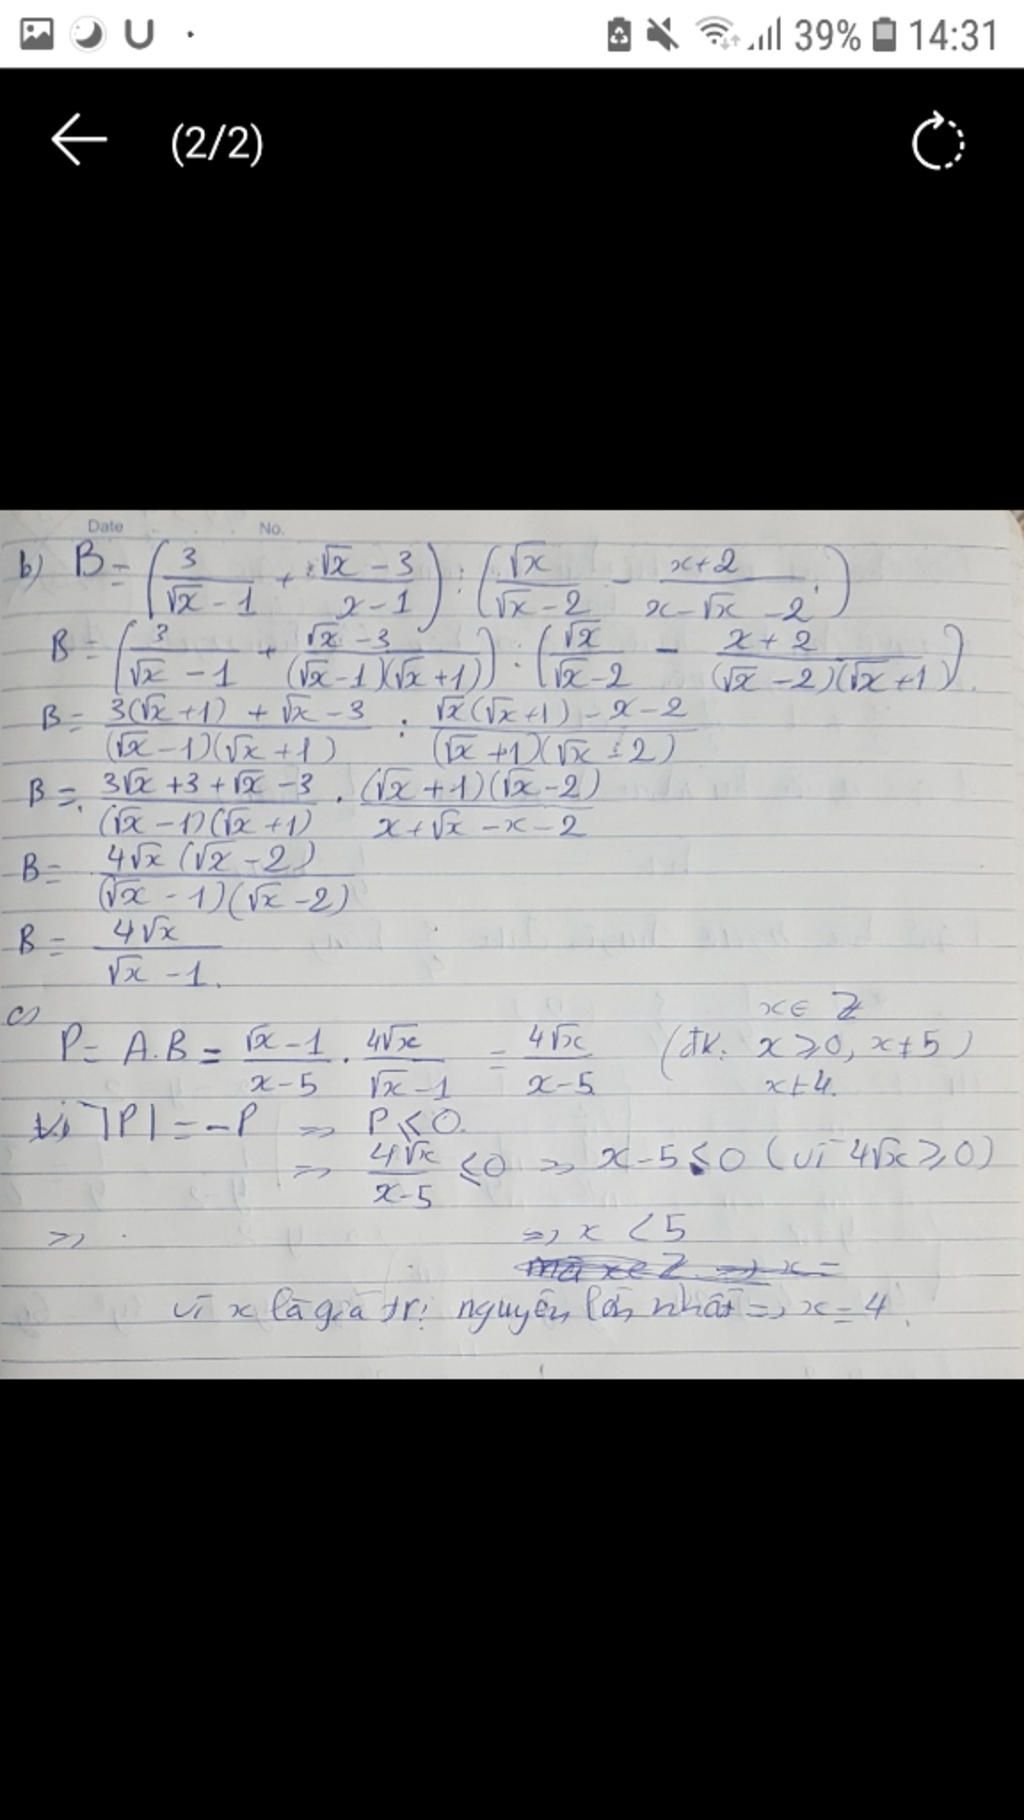 39% 14:31
(2/2)
Date No.
b) B = (3/(√x - 1) + (√x - 3)/(x - 1)) : (√x/(√x - 2) - (x + 2)/(x - √x - 2))
B = (3/(√x - 1) + (√x - 3)/((√x - 1)(√x + 1))) : (√x/(√x - 2) - (x + 2)/((√x - 2)(√x + 1)))
B = (3(√x + 1) + √x - 3)/((√x - 1)(√x + 1)) : (√x(√x + 1) - x - 2)/((√x + 1)(√x - 2))
B = (3√x + 3 + √x - 3)/((√x - 1)(√x + 1)) . ((√x + 1)(√x - 2))/(x + √x - x - 2)
B = (4√x(√x - 2))/((√x - 1)(√x - 2))
B = 4√x/(√x - 1).
c) x ∈ Z
P = A.B = (√x - 1)/(x - 5) . 4√x/(√x - 1) = 4√x/(x - 5) (đk: x ≥ 0, x ≠ 5)
x ≠ 4.
|P| = -P => P ≤ 0.
=> 4√x/(x - 5) ≤ 0 => x - 5 ≤ 0 (vì 4√x ≥ 0)
=> => x < 5
mà x ∈ Z => x =
vì x là giá trị nguyên lớn nhất => x = 4.